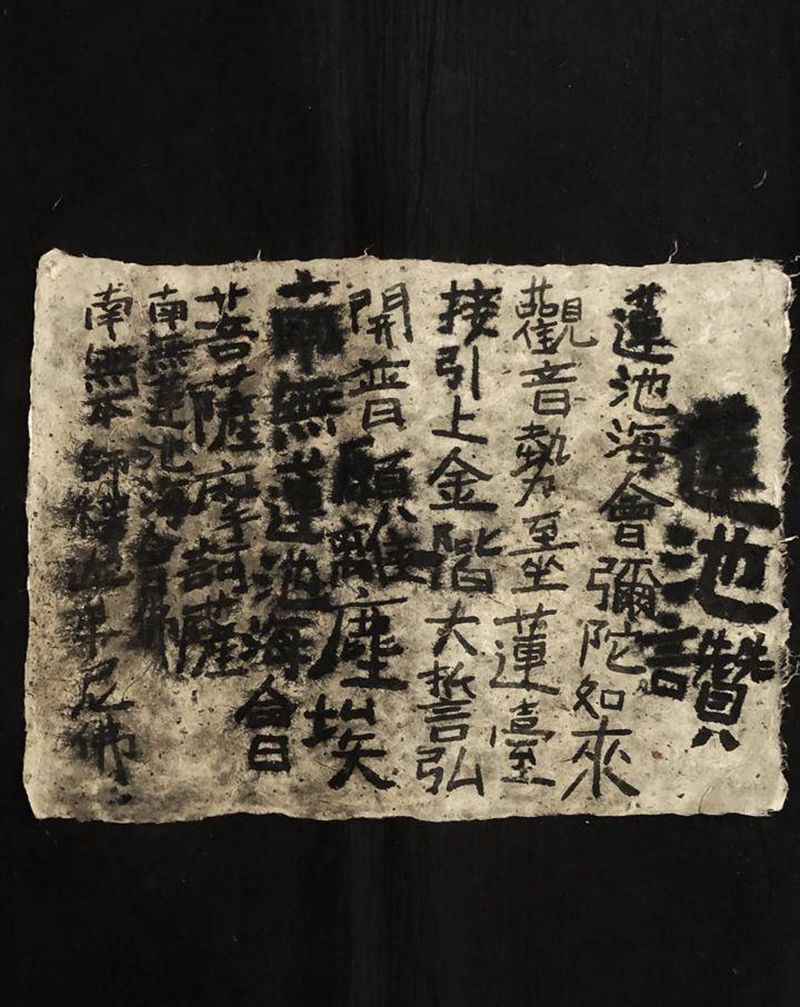 蓮池讚
蓮池海會彌陀如來
觀音勢至坐蓮臺
接引上金階大誓弘
開普願離塵埃
南無蓮池海會
菩薩摩訶薩
南無蓮池海會佛
南無本師釋迦牟尼佛